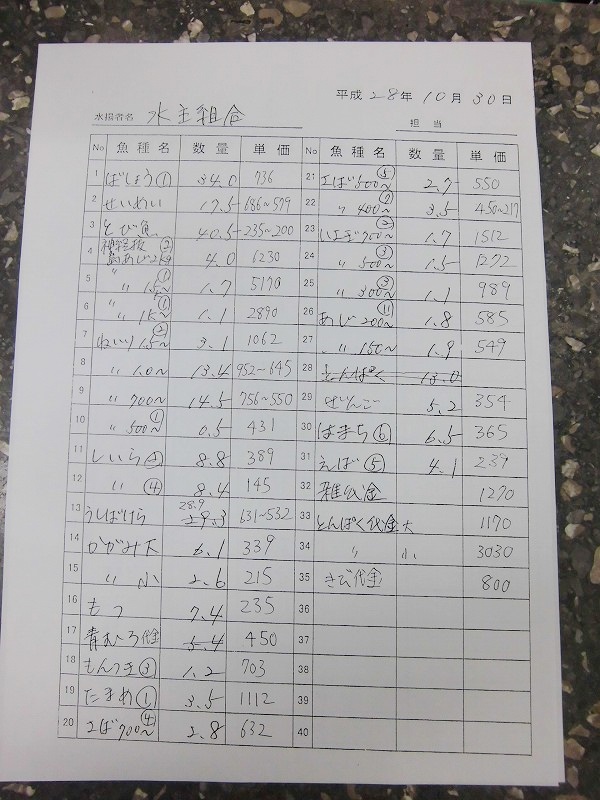 平成 28年 10月 30日
水揚者名 水主組合 担当
No 魚種名 数量 単価
1 ばしょう① 34.0 736
2 せいめい 17.5 686~579
3 とび魚 40.5 235~200
4 神経抜 ② 島あじ2k~ 4.0 6230
5 〃 1.5~ ① 1.7 5170
6 〃 1k~ ① 1.1 2890
7 ねいり 1.5~ ② 3.1 1062
8 〃 1.0~ 13.4 952~645
9 〃 700~ 14.5 756~550
10 〃 500~ ① 0.5 431
11 しいら 8.8 389
12 〃 ④ 8.4 145
13 うしばけら 28.9 29.3 631~532
14 かがみ大 6.1 339
15 〃 小 2.6 215
16 もつ 7.4 235
17 青むろ代金 5.4 450
18 もんつき③ 1.2 703
19 たまめ① 3.5 1112
20 えば700~ ④ 2.8 632
No 魚種名 数量 単価
21 えば500~ ⑤ 2.7 550
22 〃 400~ ⑦ 3.5 450~217
23 いさぎ700~ ② 1.7 1512
24 〃 500~ ③ 1.5 1272
25 〃 300~ ③ 1.1 989
26 あじ200~ ⑪ 1.8 585
27 〃 150~ 1.9 549
28 とんぱく 13.0
29 ぜんご 5.2 354
30 はまち⑥ 6.5 365
31 えば⑤ 4.1 239
32 雑代金 1270
33 とんぱく代金 大 1170
34 〃 小 3030
35 きび代金 800
36
37
38
39
40